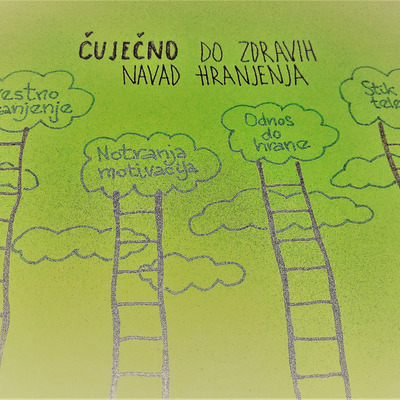 ČUJEČNO DO ZDRAVIH
NAVAD HRANJENJA
Notranja
motivacija
Odnos
do
hrane
Stik